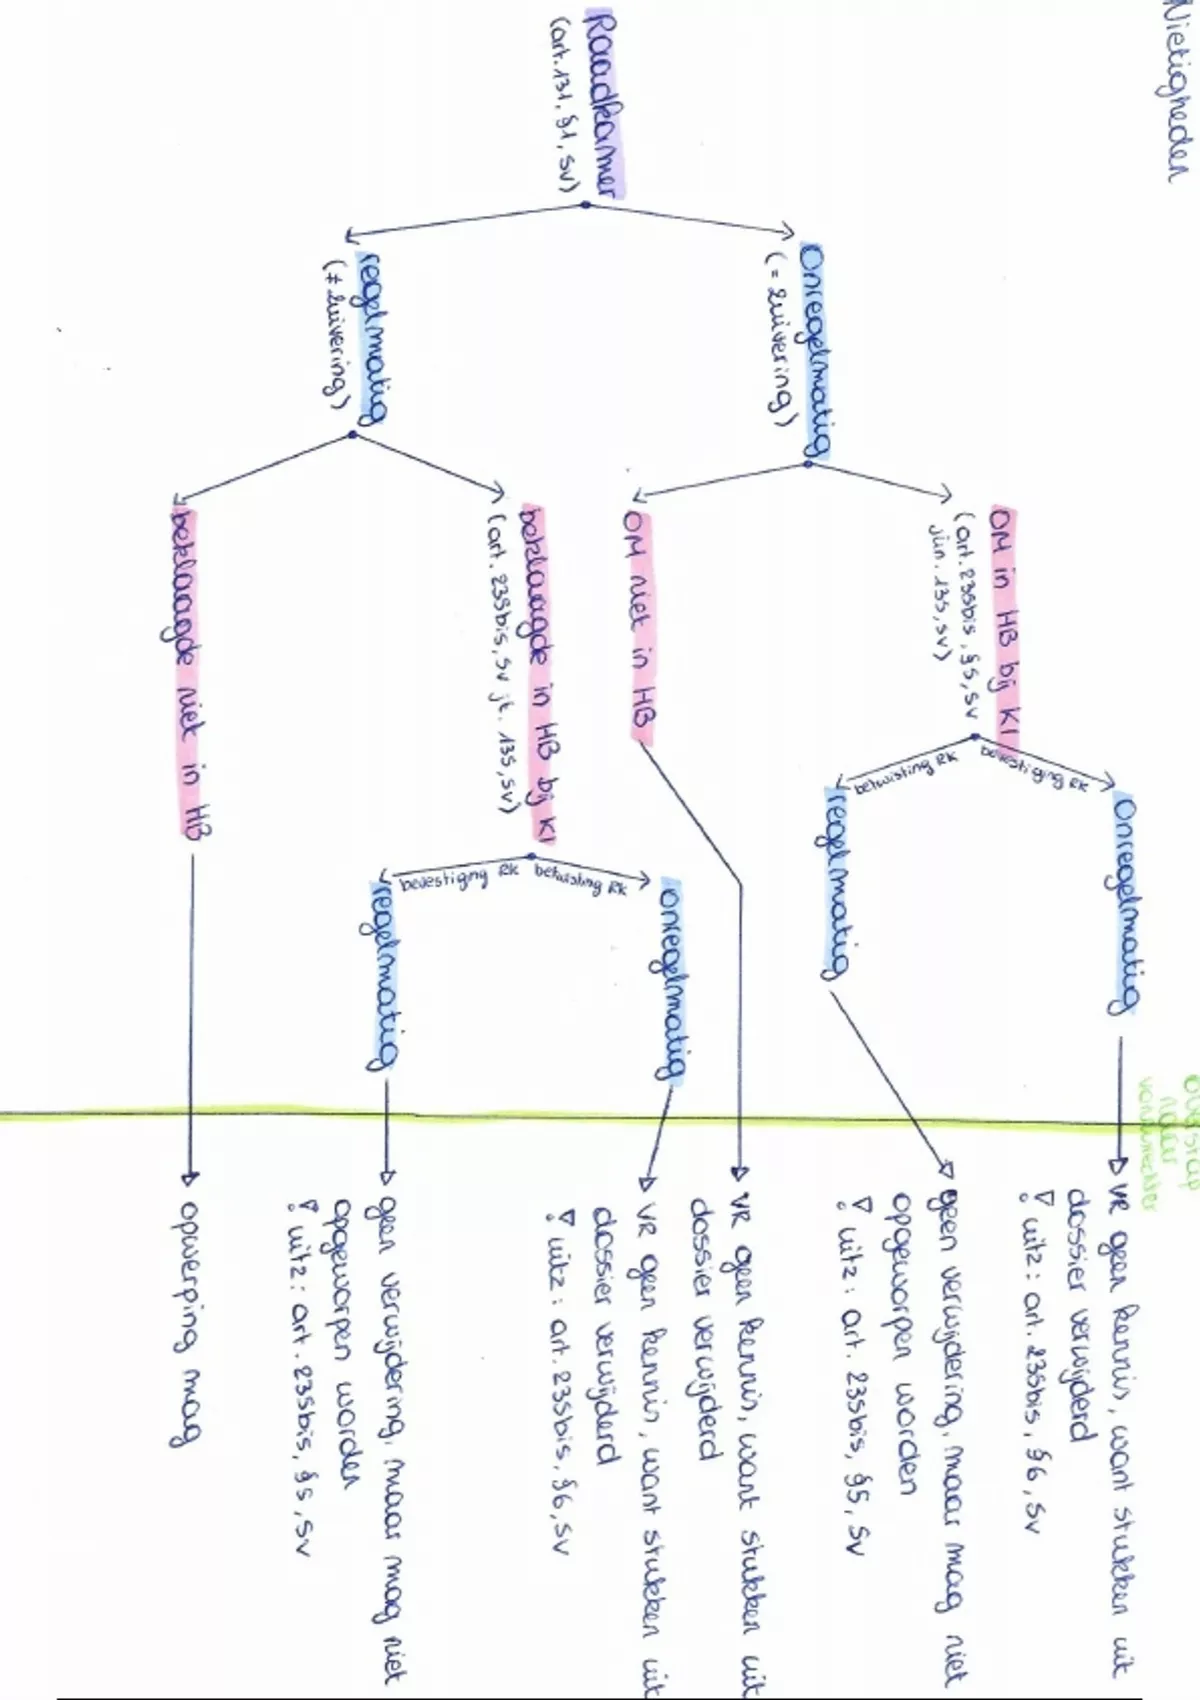 Nietigheden
Overstap
naar
vonnisrechter
Raadkamer
(art. 131, §1, sv)
Onregelmatig
(= zuivering)
regelmatig
(≠ zuivering)
OM in HB bij KI
(art. 235bis, §5, sv
jün. 135, sv)
OM niet in HB
beklaagde in HB bij KI
(art. 235bis, sv jt. 135, sv)
beklaagde niet in HB
bevestiging RK
betwisting RK
Onregelmatig
regelmatig
betwisting RK
bevestiging RK
onregelmatig
regelmatig
VR geen kennis, want stukken uit
dossier verwijderd
! uitz: art. 235bis, §6, sv
geen verwijdering, maar mag niet
opgeworpen worden
! uitz: art. 235bis, §5, sv
VR geen kennis, want stukken uit
dossier verwijderd
VR geen kennis, want stukken uit
dossier verwijderd
! uitz: art. 235bis, §6, sv
geen verwijdering, maar mag niet
opgeworpen worden
! uitz: art. 235bis, §5, sv
opwerping mag